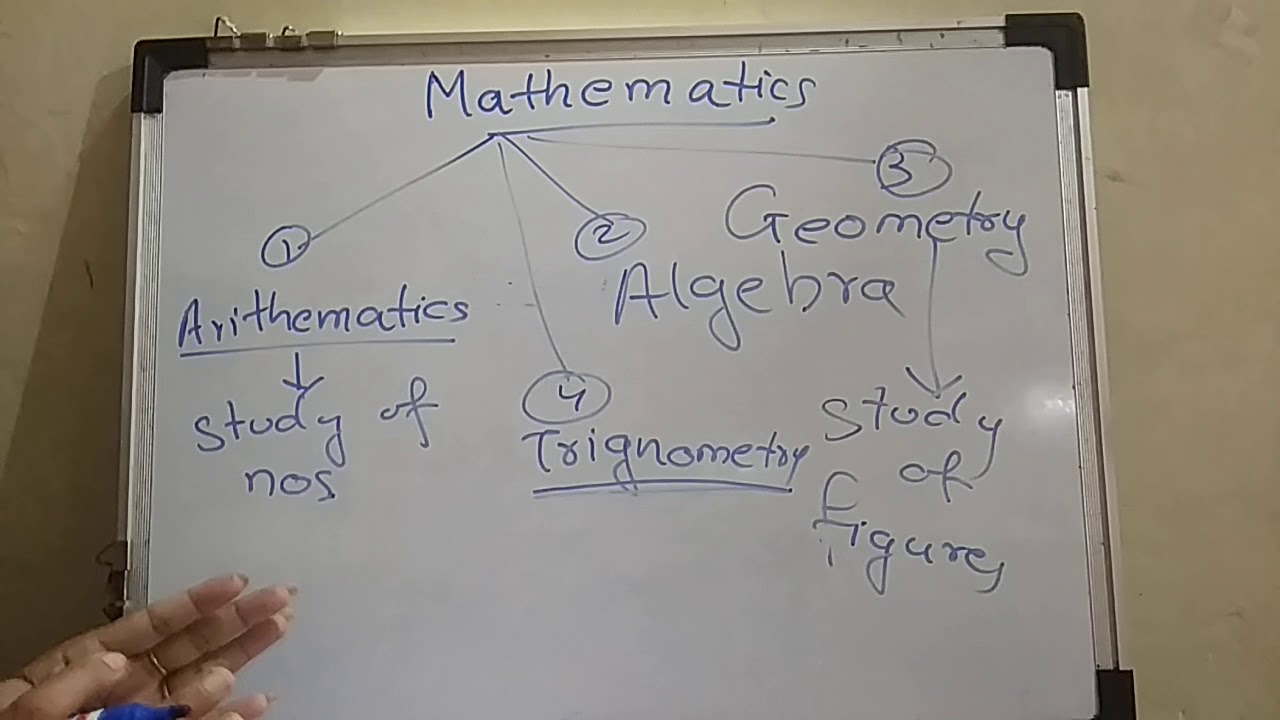 Mathematics
1
Arithematics
study of
nos
2
Algebra
3
Geometry
study
of
Figures
4
Trignometry